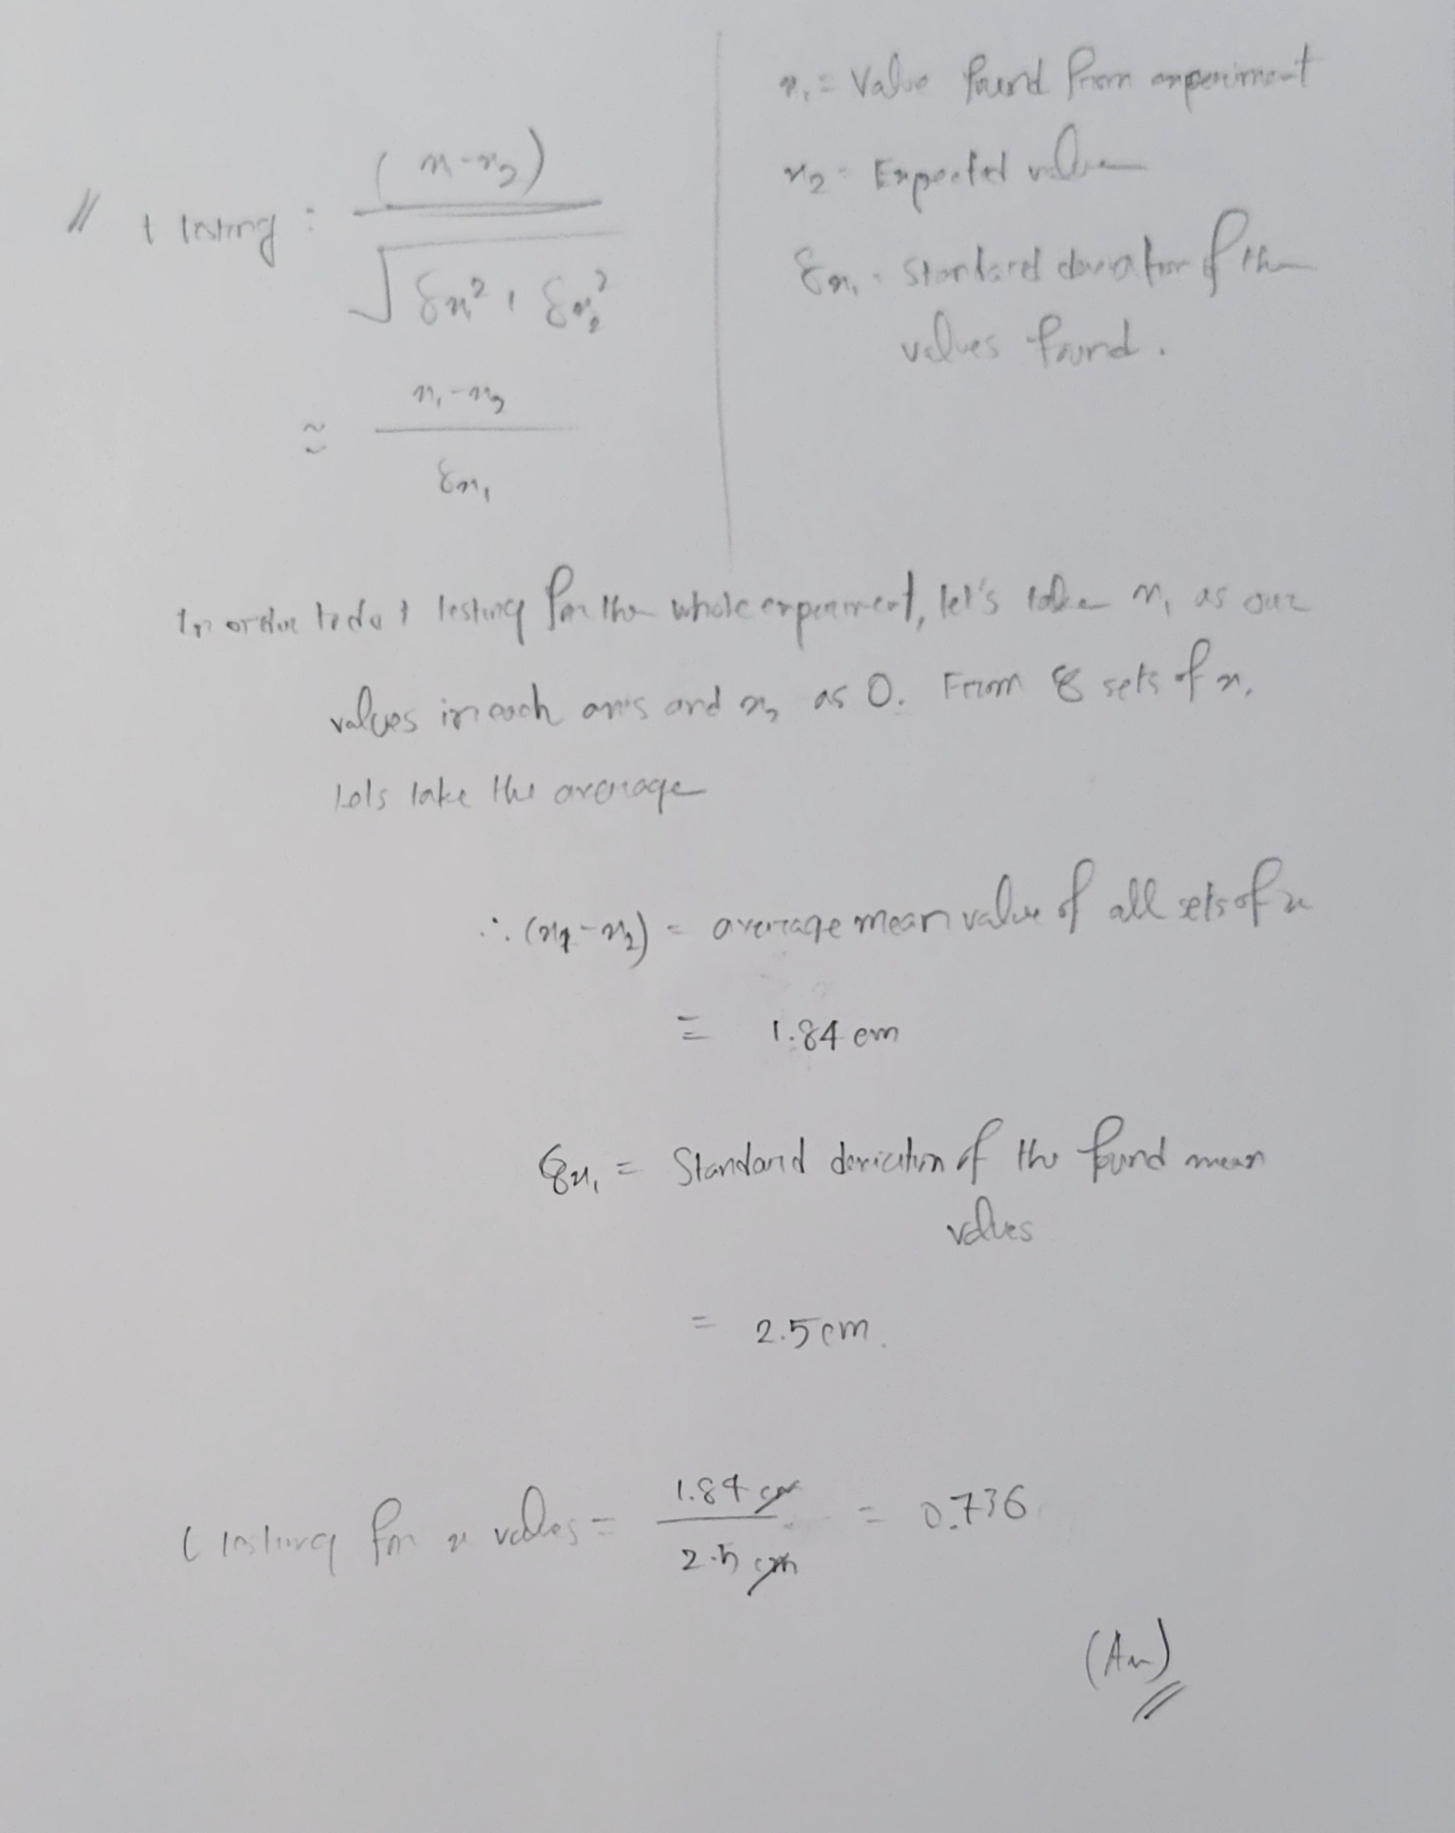 x₁ = Value found from experiment
x₂ = Expected value
δx₁ = Standard deviation of the
values found.
// t testing : (x₁-x₂) / √δx₁² + δx₂²
≈ x₁-x₂ / δx₁
In order to do t testing for the whole experiment, let's take x₁ as our
values in each axis and x₂ as 0. From 8 sets of x,
lets take the average
∴ (x₁-x₂) = average mean value of all sets of x
= 1.84 cm
δx₁ = Standard deviation of the found mean
values
= 2.5 cm.
t testing for x values = 1.84 cm / 2.5 cm = 0.736
(An)